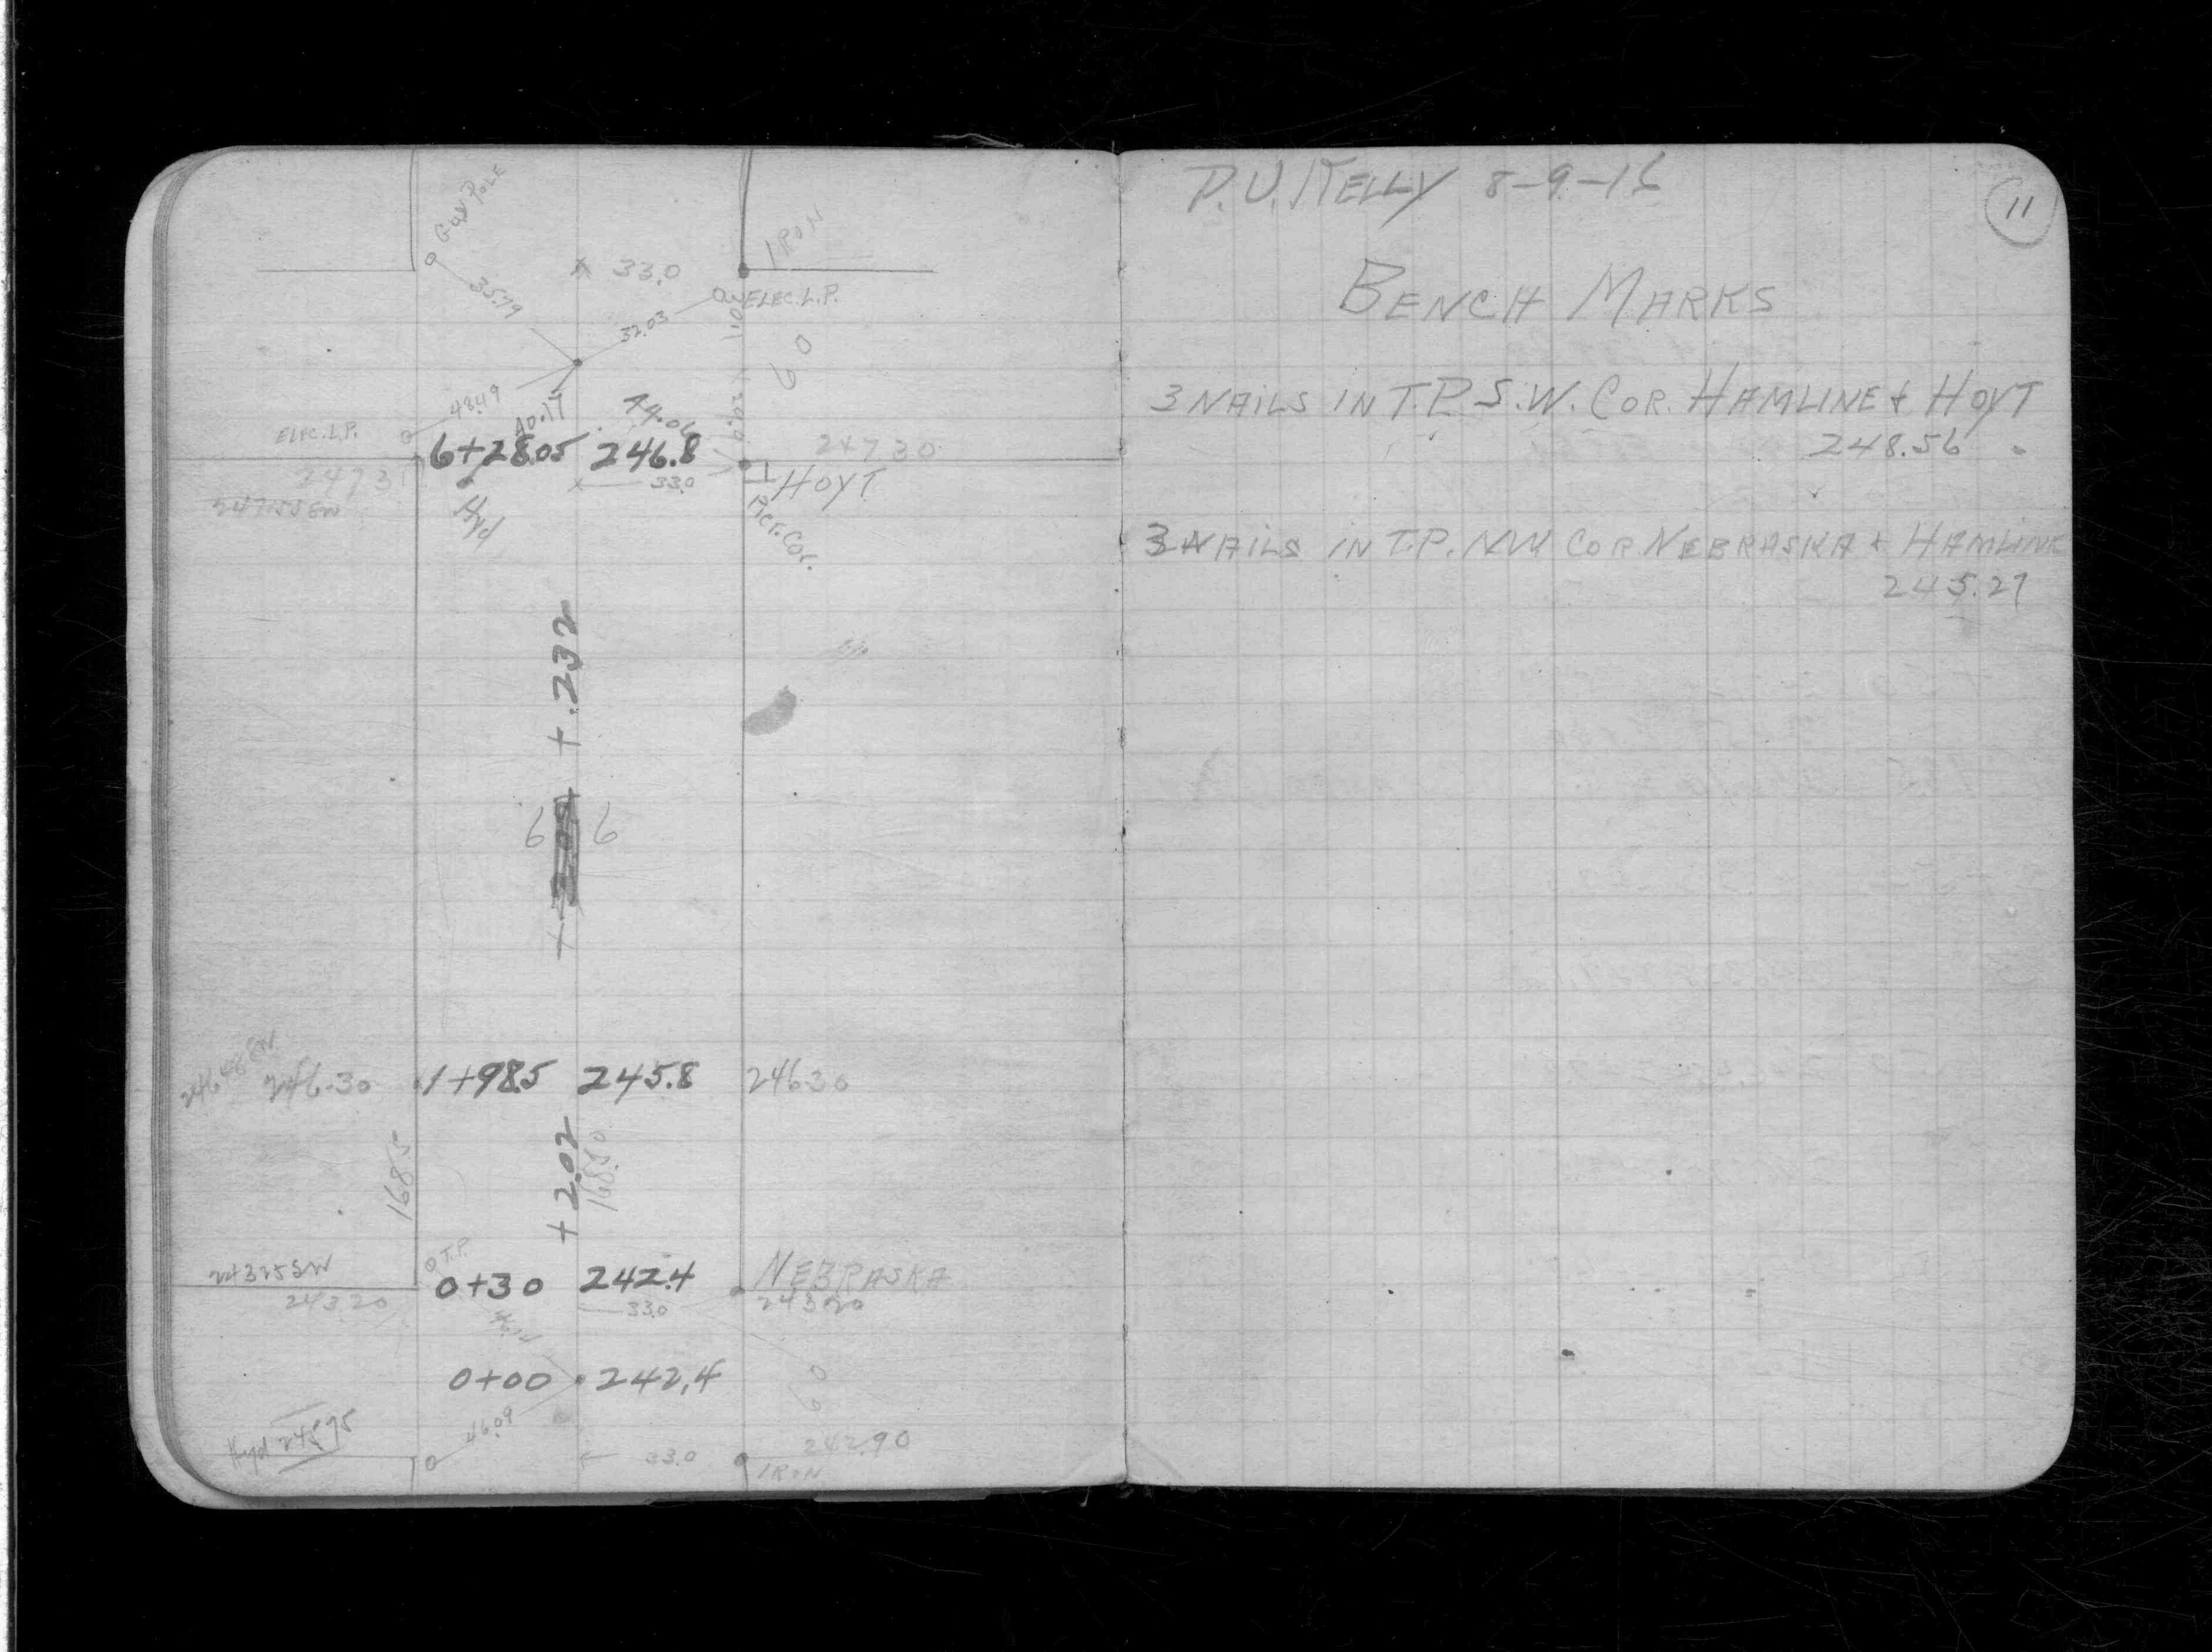 Guy Pole
IRON
33.0
35.79
ELEC.L.P.
32.03
60
48.49
40.17
74.06
ELEC.L.P.
6+28.05 246.8
247 30
247 3
33.0
HOYT
247.55 SW
Hyd
Pier.Cor.
+.232
6 6
246.48 SW
246.30
1+98.5 245.8
246 30
1685
+2.02
168.50
O T.P.
243 25 SW
0+30 242.4
NEBRASKA
243.20
33.0
243 20
0+00 242.4
60
Hyd 245.75
46.09
33.0
242.90
IRON
P.U. KELLY 8-9-16
11
BENCH MARKS
3 NAILS IN T.P. S.W. COR. HAMLINE & HOYT
248.56
3 NAILS IN T.P. NW COR NEBRASKA & HAMLINE
245.27